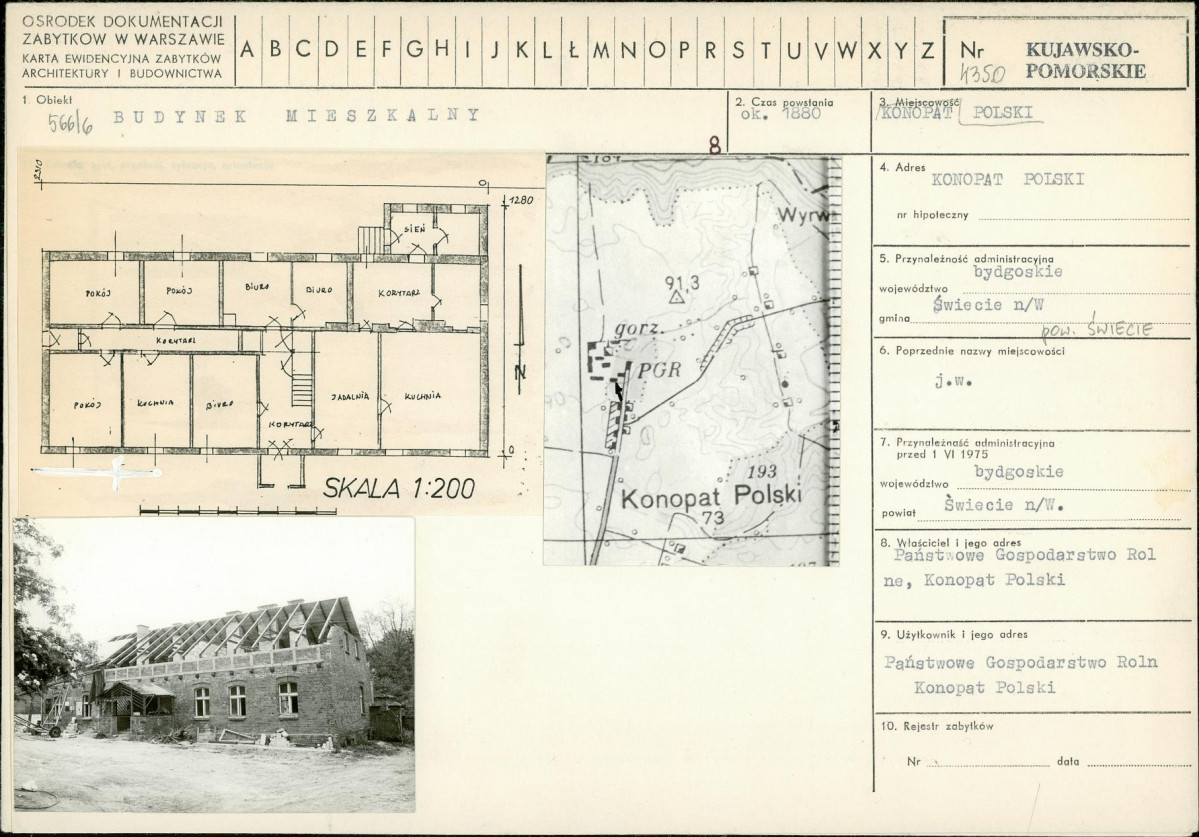 OŚRODEK DOKUMENTACJI
ZABYTKÓW W WARSZAWIE
KARTA EWIDENCYJNA ZABYTKÓW
ARCHITEKTURY I BUDOWNICTWA
A B C D E F G H I J K L Ł M N O P R S T U V W X Y Z
Nr
4350
KUJAWSKO-
POMORSKIE
1. Obiekt
566/6 BUDYNEK MIESZKALNY
2. Czas powstania
ok. 1880
3. Miejscowość
/KONOPAT POLSKI
8
4. Adres
KONOPAT POLSKI
nr hipoteczny
5. Przynależność administracyjna
bydgoskie
województwo
Świecie n/W
gmina
pow. ŚWIECIE
6. Poprzednie nazwy miejscowości
j.w.
7. Przynależność administracyjna
przed 1 VI 1975
bydgoskie
województwo
Świecie n/W.
powiat
8. Właściciel i jego adres
Państwowe Gospodarstwo Rol
ne, Konopat Polski
9. Użytkownik i jego adres
Państwowe Gospodarstwo Roln
Konopat Polski
10. Rejestr zabytków
Nr data
0
1280
SIEŃ
POKÓJ POKÓJ BIURO BIURO KORYTARZ
KORYTARZ
POKÓJ KUCHNIA BIURO JADALNIA KUCHNIA
KORYTARZ
N
0
SKALA 1:200
Wyrw
91,3
gorz.
PGR
193
Konopat Polski
73